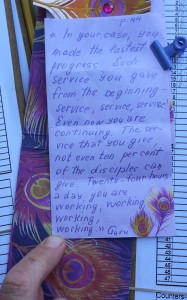 p. 44
"In your case, you
made the fastest
progress. Such
service you gave
from the beginning -
service, service, service!
Even now you are
continuing. The ser-
vice that you give,
not even ten per cent
of the disciples can
give. Twenty-four hours
a day you are
working, working
working,
working." Guru
42
43
44
45
46
47
48
49
50
Counters